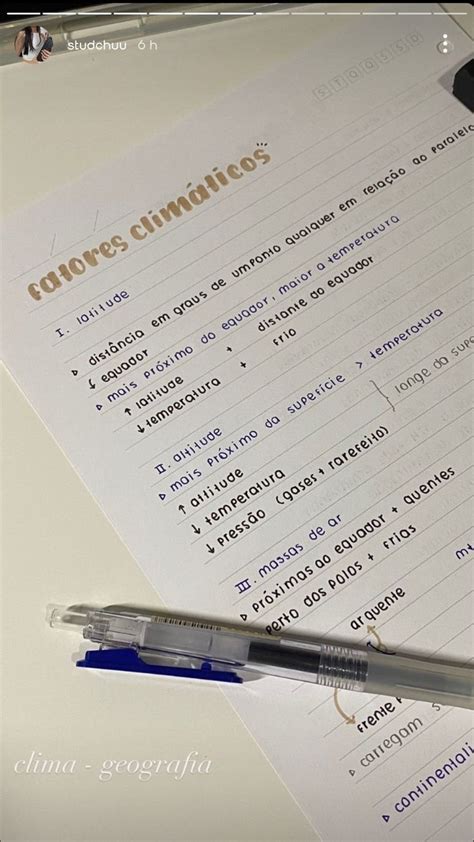 studchuu 6 h
S T Q Q S S D
fatores climáticos
I. latitude
▷ distância em graus de um ponto qualquer em relação ao paralelo
↓ equador
▷ mais próximo do equador, maior a temperatura
↑ latitude + distante do equador
↓ temperatura + frio
II. altitude
▷ mais próximo da superfície > temperatura
↑ altitude
longe da
↓ temperatura
↓ pressão (gases + rarefeito)
III. massas de ar
▷ próximas ao equador + quentes
perto dos polos + frias
ar quente
frente
▷ carregam
▷
clima - geografia